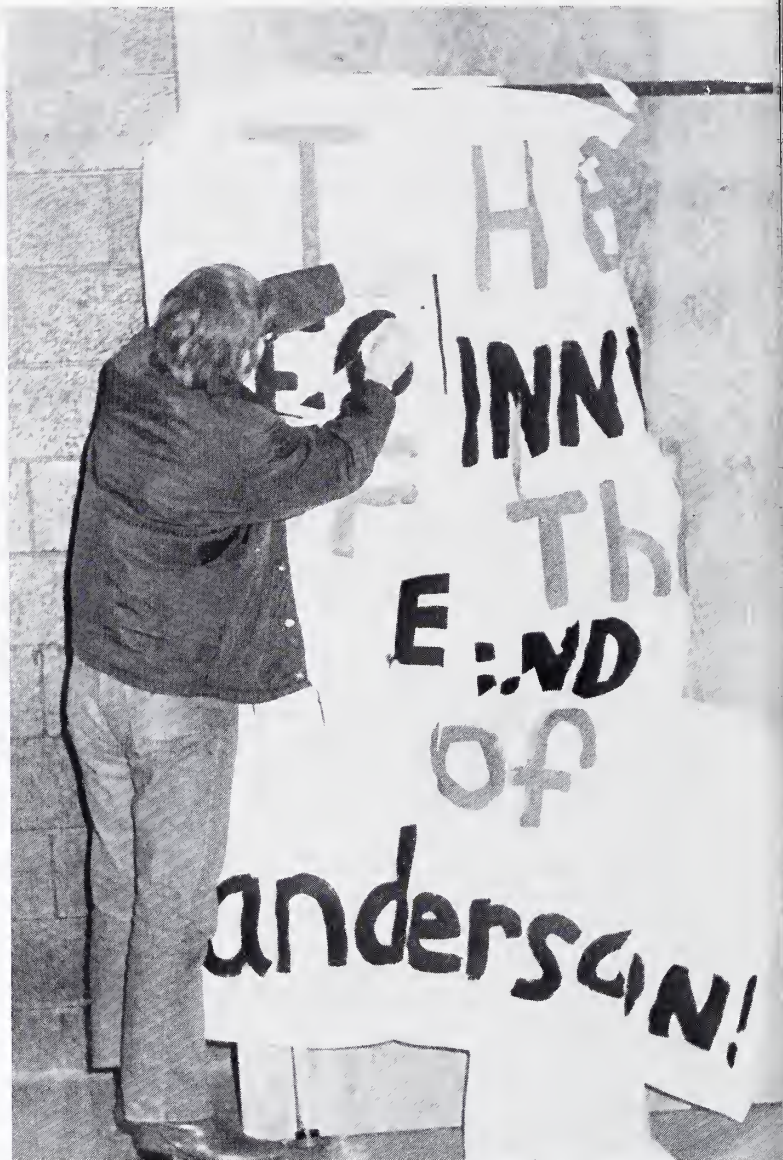 THE
INN
Th
END
of
andersoN!